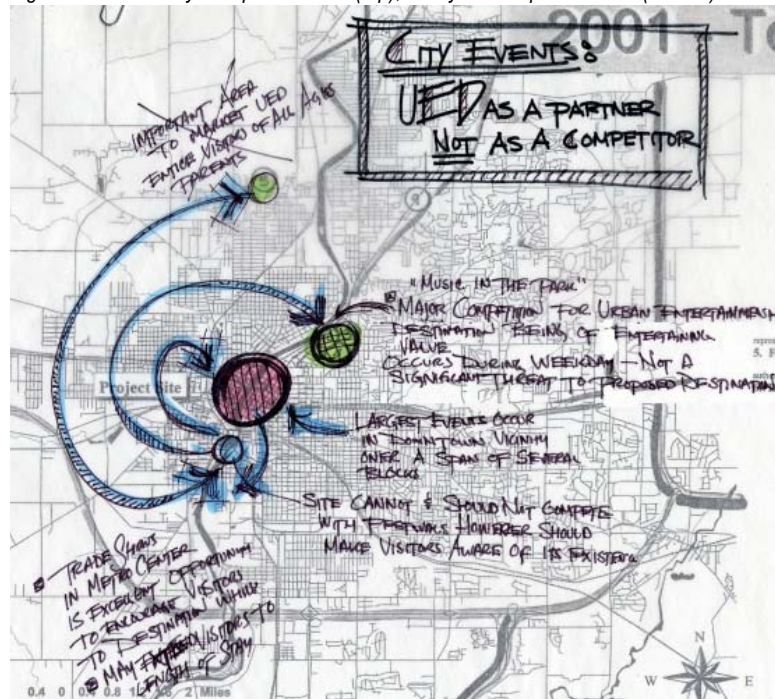 2001 To
CITY EVENTS:
UED AS A PARTNER
NOT AS A COMPETITOR
IMPORTANT AREA
TO MARKET UED
ENTICE VISITORS OF ALL AGES
PARENTS
"MUSIC IN THE PARK"
MAJOR COMPETITION FOR URBAN ENTERTAINMENT
DESTINATION BEING OF ENTERTAINING
VALUE
OCCURS DURING WEEKDAY - NOT A
SIGNIFICANT THREAT TO PROPOSED DESTINATION
5. F
Project Site
LARGEST EVENTS OCCUR
IN DOWNTOWN VICINITY
OVER A SPAN OF SEVERAL
BLOCKS
SITE CANNOT & SHOULD NOT COMPETE
WITH FESTIVALS HOWEVER SHOULD
MAKE VISITORS AWARE OF ITS EXISTENCE
TRADE SHOWS
IN METRO CENTER
IS EXCELLENT OPPORTUNITY
TO ENCOURAGE VISITORS
TO DESTINATION WHILE
MAY VISITORS TO
LENGTH OF STAY
N
W E
0.4 0 0.8 1.6 2 Miles